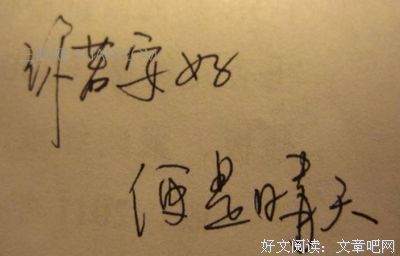 你若安好
便是晴天
好文阅读：文章吧网